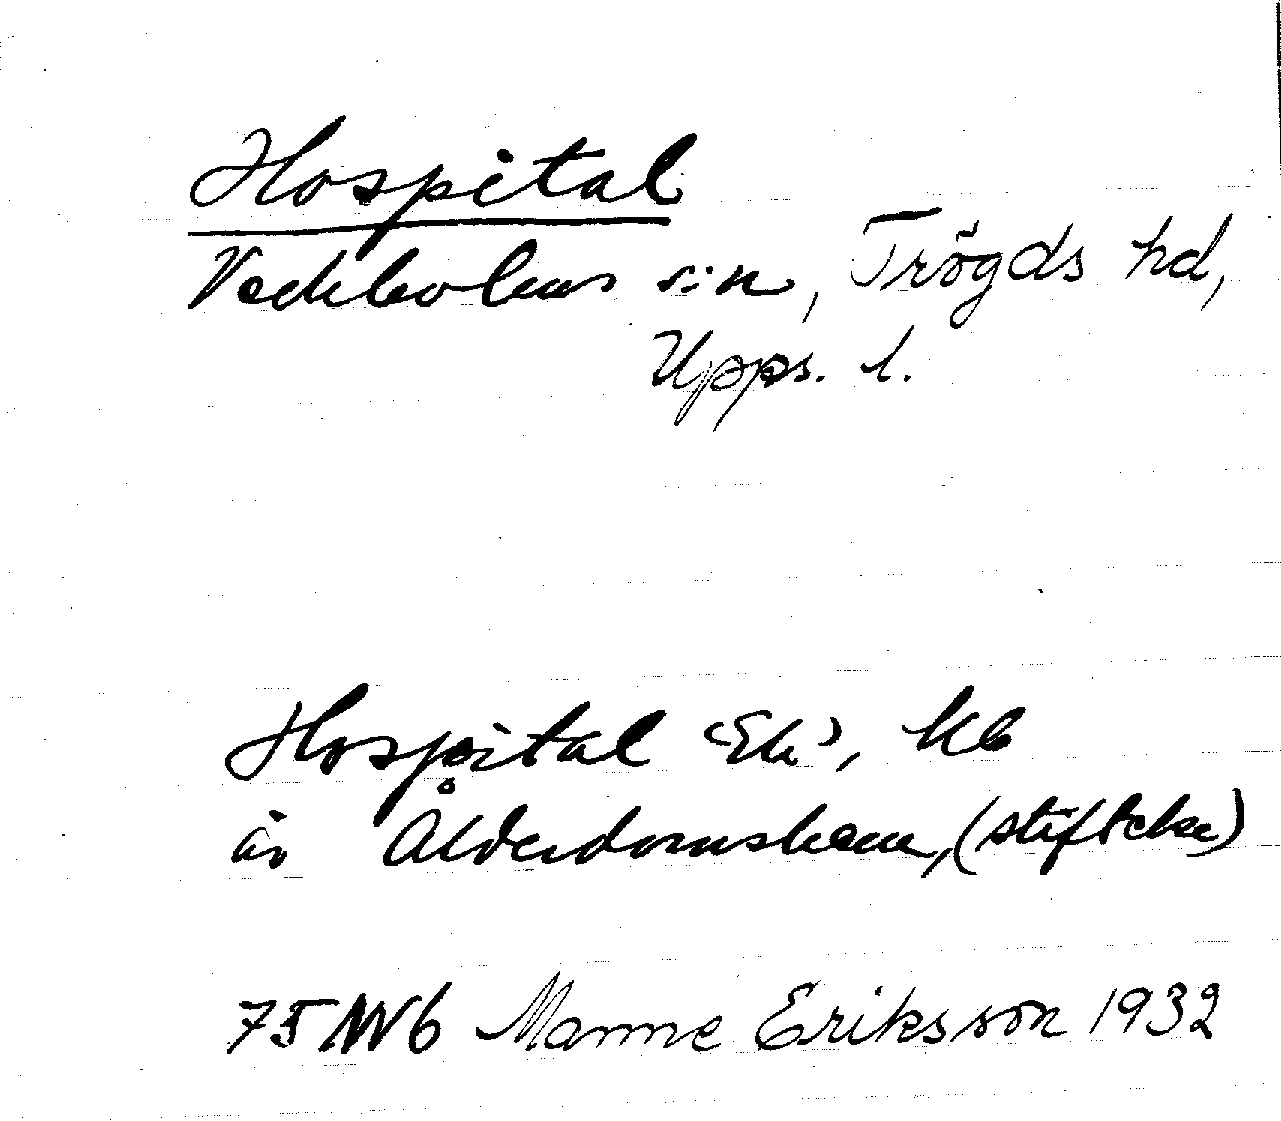 Hospital
Veckholms s:n, Trögds hd,
Upps. l.
Hospital ‹Ek›, kb
är Ålderdomshem, (stiftelse)
75 NV b Manne Eriksson 1932